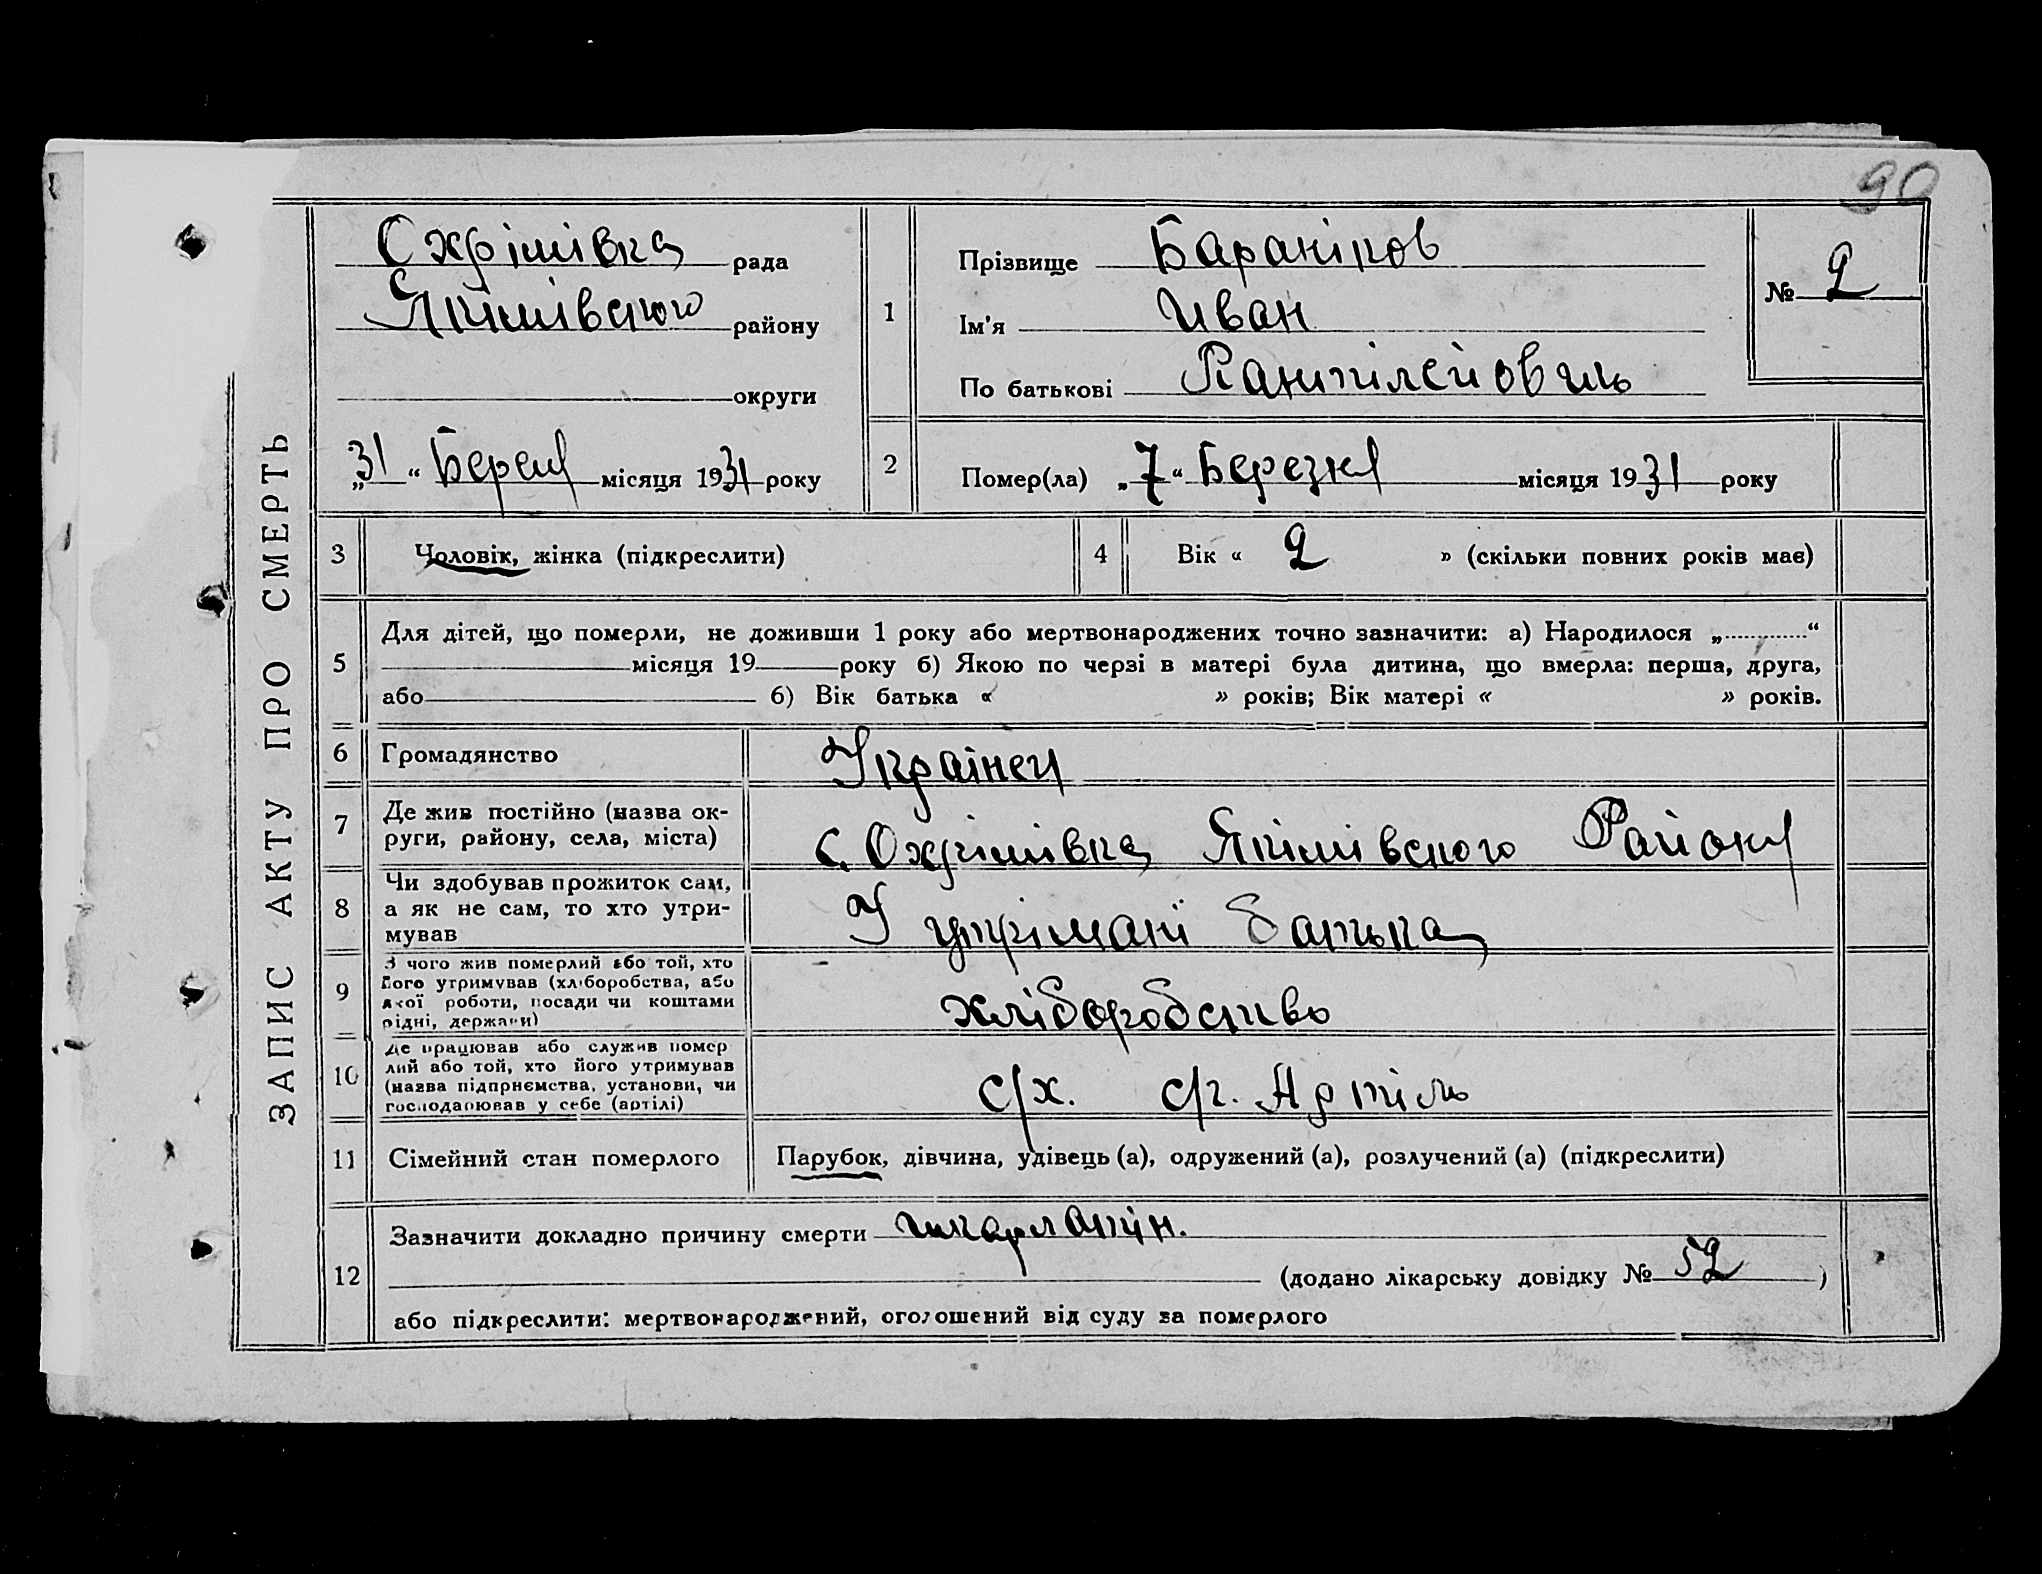 90
ЗАПИС АКТУ ПРО СМЕРТЬ
Охрімівка рада
Якімівского району
округи
„31“ Берез місяця 1931 року
1
Прізвище Бараніков
Ім'я Иван
По батькові
№ 2
2
Помер(ла) „7“ Березня місяця 1931 року
3
Чоловік, жінка (підкреслити)
4
Вік « 2 » (скільки повних років має)
5
Для дітей, що померли, не доживши 1 року або мертвонароджених точно зазначити: а) Народилося „............“
місяця 19 року б) Якою по черзі в матері була дитина, що вмерла: перша, друга,
або б) Вік батька « » років; Вік матері « » років.
6
Громадянство
Українец
7
Де жив постійно (назва ок-
руги, району, села, міста)
с. Охрімівка Якімівского Району
8
Чи здобував прожиток сам,
а як не сам, то хто утри-
мував
У утрімані батька
9
З чого жив померлий або той, хто
його утримував (хліборобства, або
якої роботи, посади чи коштами
рідні, держави)
хліборобство
10
Де працював або служив помер
лий або той, хто його утримував
(назва підприємства, установи, чи
господарював у себе (артілі)
с/х. с/г. Артіль
11
Сімейний стан померлого
Парубок, дівчина, удівець (а), одружений (а), розлучений (а) (підкреслити)
12
Зазначити докладно причину смерти шкарлатін.
(додано лікарську довідку № 52 )
або підкреслити: мертвонароджений, оголошений від суду за померлого